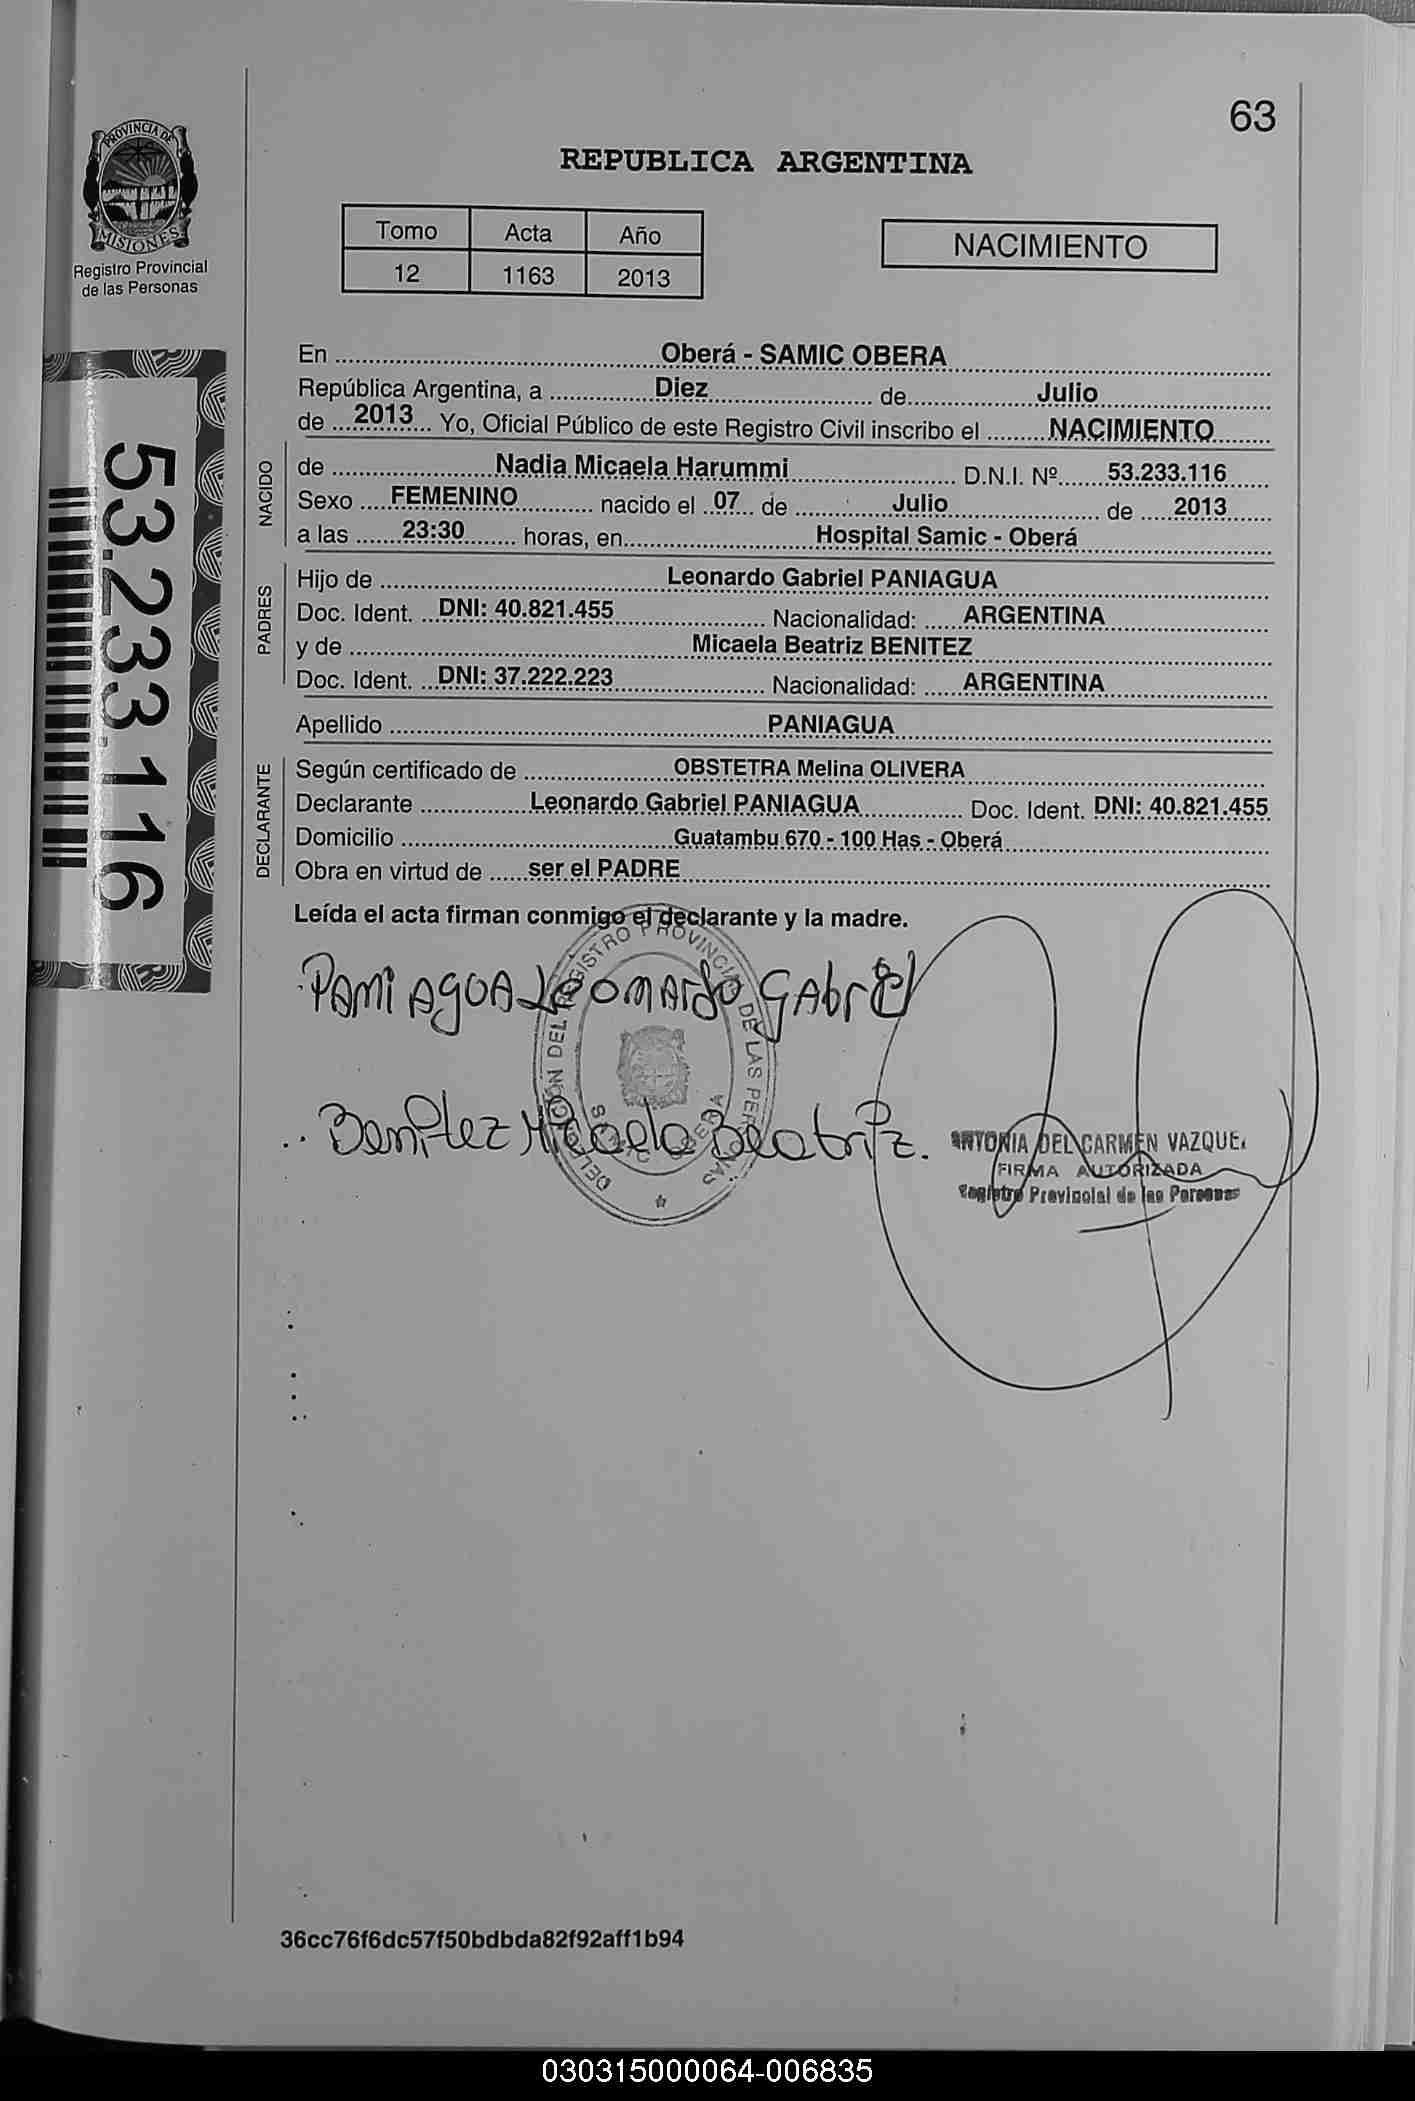 63
PROVINCIA DE
MISIONES
Registro Provincial
de las Personas
REPUBLICA ARGENTINA
Tomo Acta Año
12 1163 2013
NACIMIENTO
53.233.116
En Oberá - SAMIC OBERA
República Argentina, a Diez de Julio
de 2013 Yo, Oficial Público de este Registro Civil inscribo el NACIMIENTO
NACIDO
de Nadia Micaela Harummi D.N.I. Nº 53.233.116
Sexo FEMENINO nacido el 07 de Julio de 2013
a las 23:30 horas, en Hospital Samic - Oberá
PADRES
Hijo de Leonardo Gabriel PANIAGUA
Doc. Ident. DNI: 40.821.455 Nacionalidad: ARGENTINA
y de Micaela Beatriz BENITEZ
Doc. Ident. DNI: 37.222.223 Nacionalidad: ARGENTINA
Apellido PANIAGUA
DECLARANTE
Según certificado de OBSTETRA Melina OLIVERA
Declarante Leonardo Gabriel PANIAGUA Doc. Ident. DNI: 40.821.455
Domicilio Guatambu 670 - 100 Has - Oberá
Obra en virtud de ser el PADRE
Leída el acta firman conmigo el declarante y la madre.
PANIAGUA Leonardo Gabriel
DELEGACIÓN DEL REGISTRO PROVINCIAL DE LAS PERSONAS
SAMIC OBERA
Benitez Micaela Beatriz.
ANTONIA DEL CARMEN VAZQUE
FIRMA AUTORIZADA
Registro Provincial de las Personas
36cc76f6dc57f50bdbda82f92aff1b94
030315000064-006835